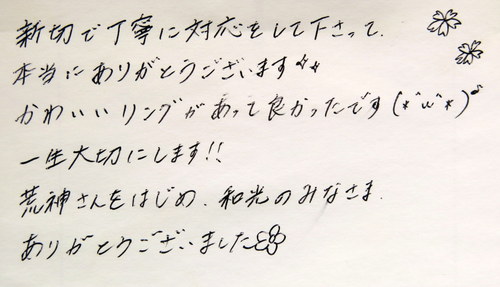 新切で丁寧に対応をして下さって、
本当にありがとうございます
かわいいリングがあって良かったです(*^ω^*)♪
一生大切にします!!
荒神さんをはじめ、和光のみなさま、
ありがとうございました